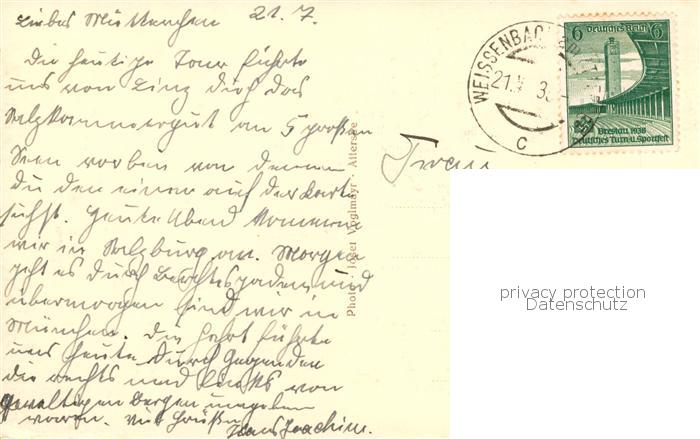 Liebes Muttchen 21.7.
Die heutige Tour führte
uns von Linz durch das
Salzkammergut an 5 großen
Seen vorbei von denen
du den einen auf der Karte
siehst. Heute Abend kommen
wir in Salzburg an. Morgen
geht es durch Berchtesgaden und
übermorgen sind wir in
München. Die Fahrt führte
uns heute durch Gegenden
die rechts und links von
gewaltigen Bergen umgeben
waren. Viel Grüße
Hans Joachim.
Photo: Josef Voglmayr. Attersee
WEISSENBACH
21.
38
C
6 Deutsches Reich 6
Breslau 1938
Deutsches Turn-u. Sportfest
Frau
privacy protection
Datenschutz